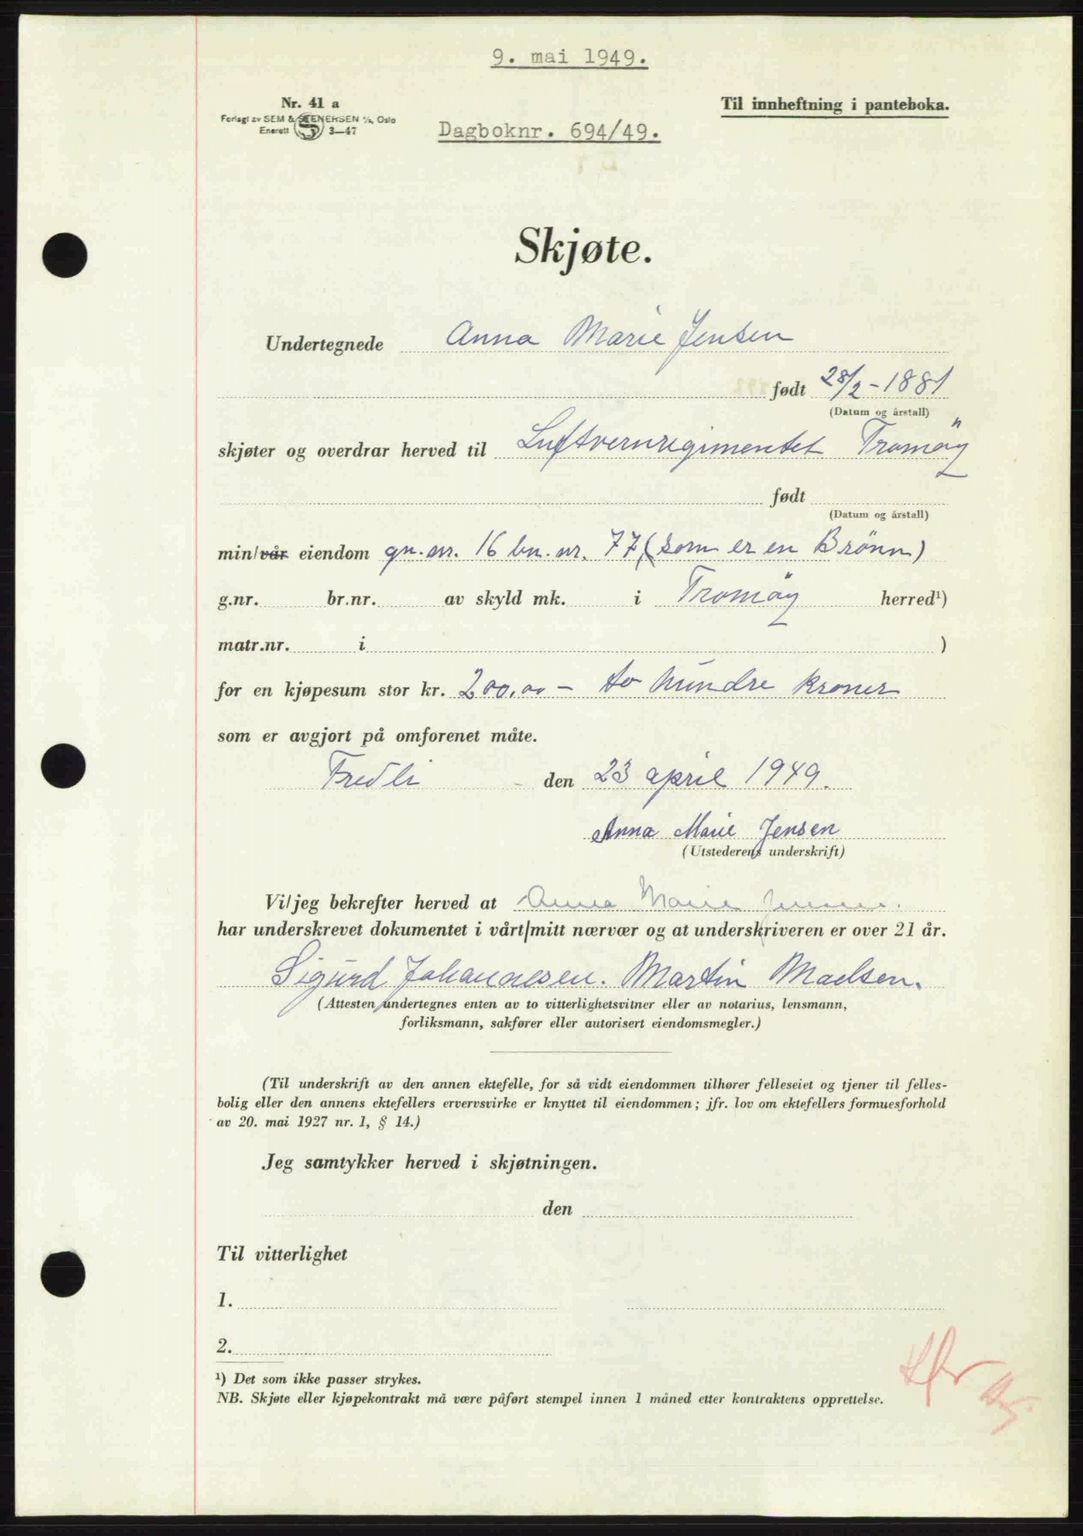 9. mai 1949.
Nr. 41 a
Til innheftning i panteboka.
Forlagt av SEM & STENERSEN A/S, Oslo
Enerett S 3—47
Dagboknr. 694/49.
Skjøte.
Undertegnede Anna Marie Jensen
født 28/2-1881
(Datum og årstall)
skjøter og overdrar herved til Luftvernregimentet Tromöy
født
(Datum og årstall)
min/vår eiendom gn.nr. 16 bn.nr. 77, (som er en Brönn)
g.nr. br.nr. av skyld mk. i Tromöy herred¹)
matr.nr. i )
for en kjøpesum stor kr. 200,00 - to hundre kroner
som er avgjort på omforenet måte.
Fredli den 23 april 1949.
Anna Marie Jensen
(Utstederens underskrift)
Vi/jeg bekrefter herved at Anna Marie Jensen.
har underskrevet dokumentet i vårt/mitt nærvær og at underskriveren er over 21 år.
Sigurd Johannesen. Martin Madsen.
(Attesten undertegnes enten av to vitterlighetsvitner eller av notarius, lensmann,
forliksmann, sakfører eller autorisert eiendomsmegler.)
(Til underskrift av den annen ektefelle, for så vidt eiendommen tilhører felleseiet og tjener til felles-
bolig eller den annens ektefellers ervervsvirke er knyttet til eiendommen; jfr. lov om ektefellers formuesforhold
av 20. mai 1927 nr. 1, § 14.)
Jeg samtykker herved i skjøtningen.
den
Til vitterlighet
1.
2.
¹) Det som ikke passer strykes.
NB. Skjøte eller kjøpekontrakt må være påført stempel innen 1 måned etter kontraktens opprettelse.